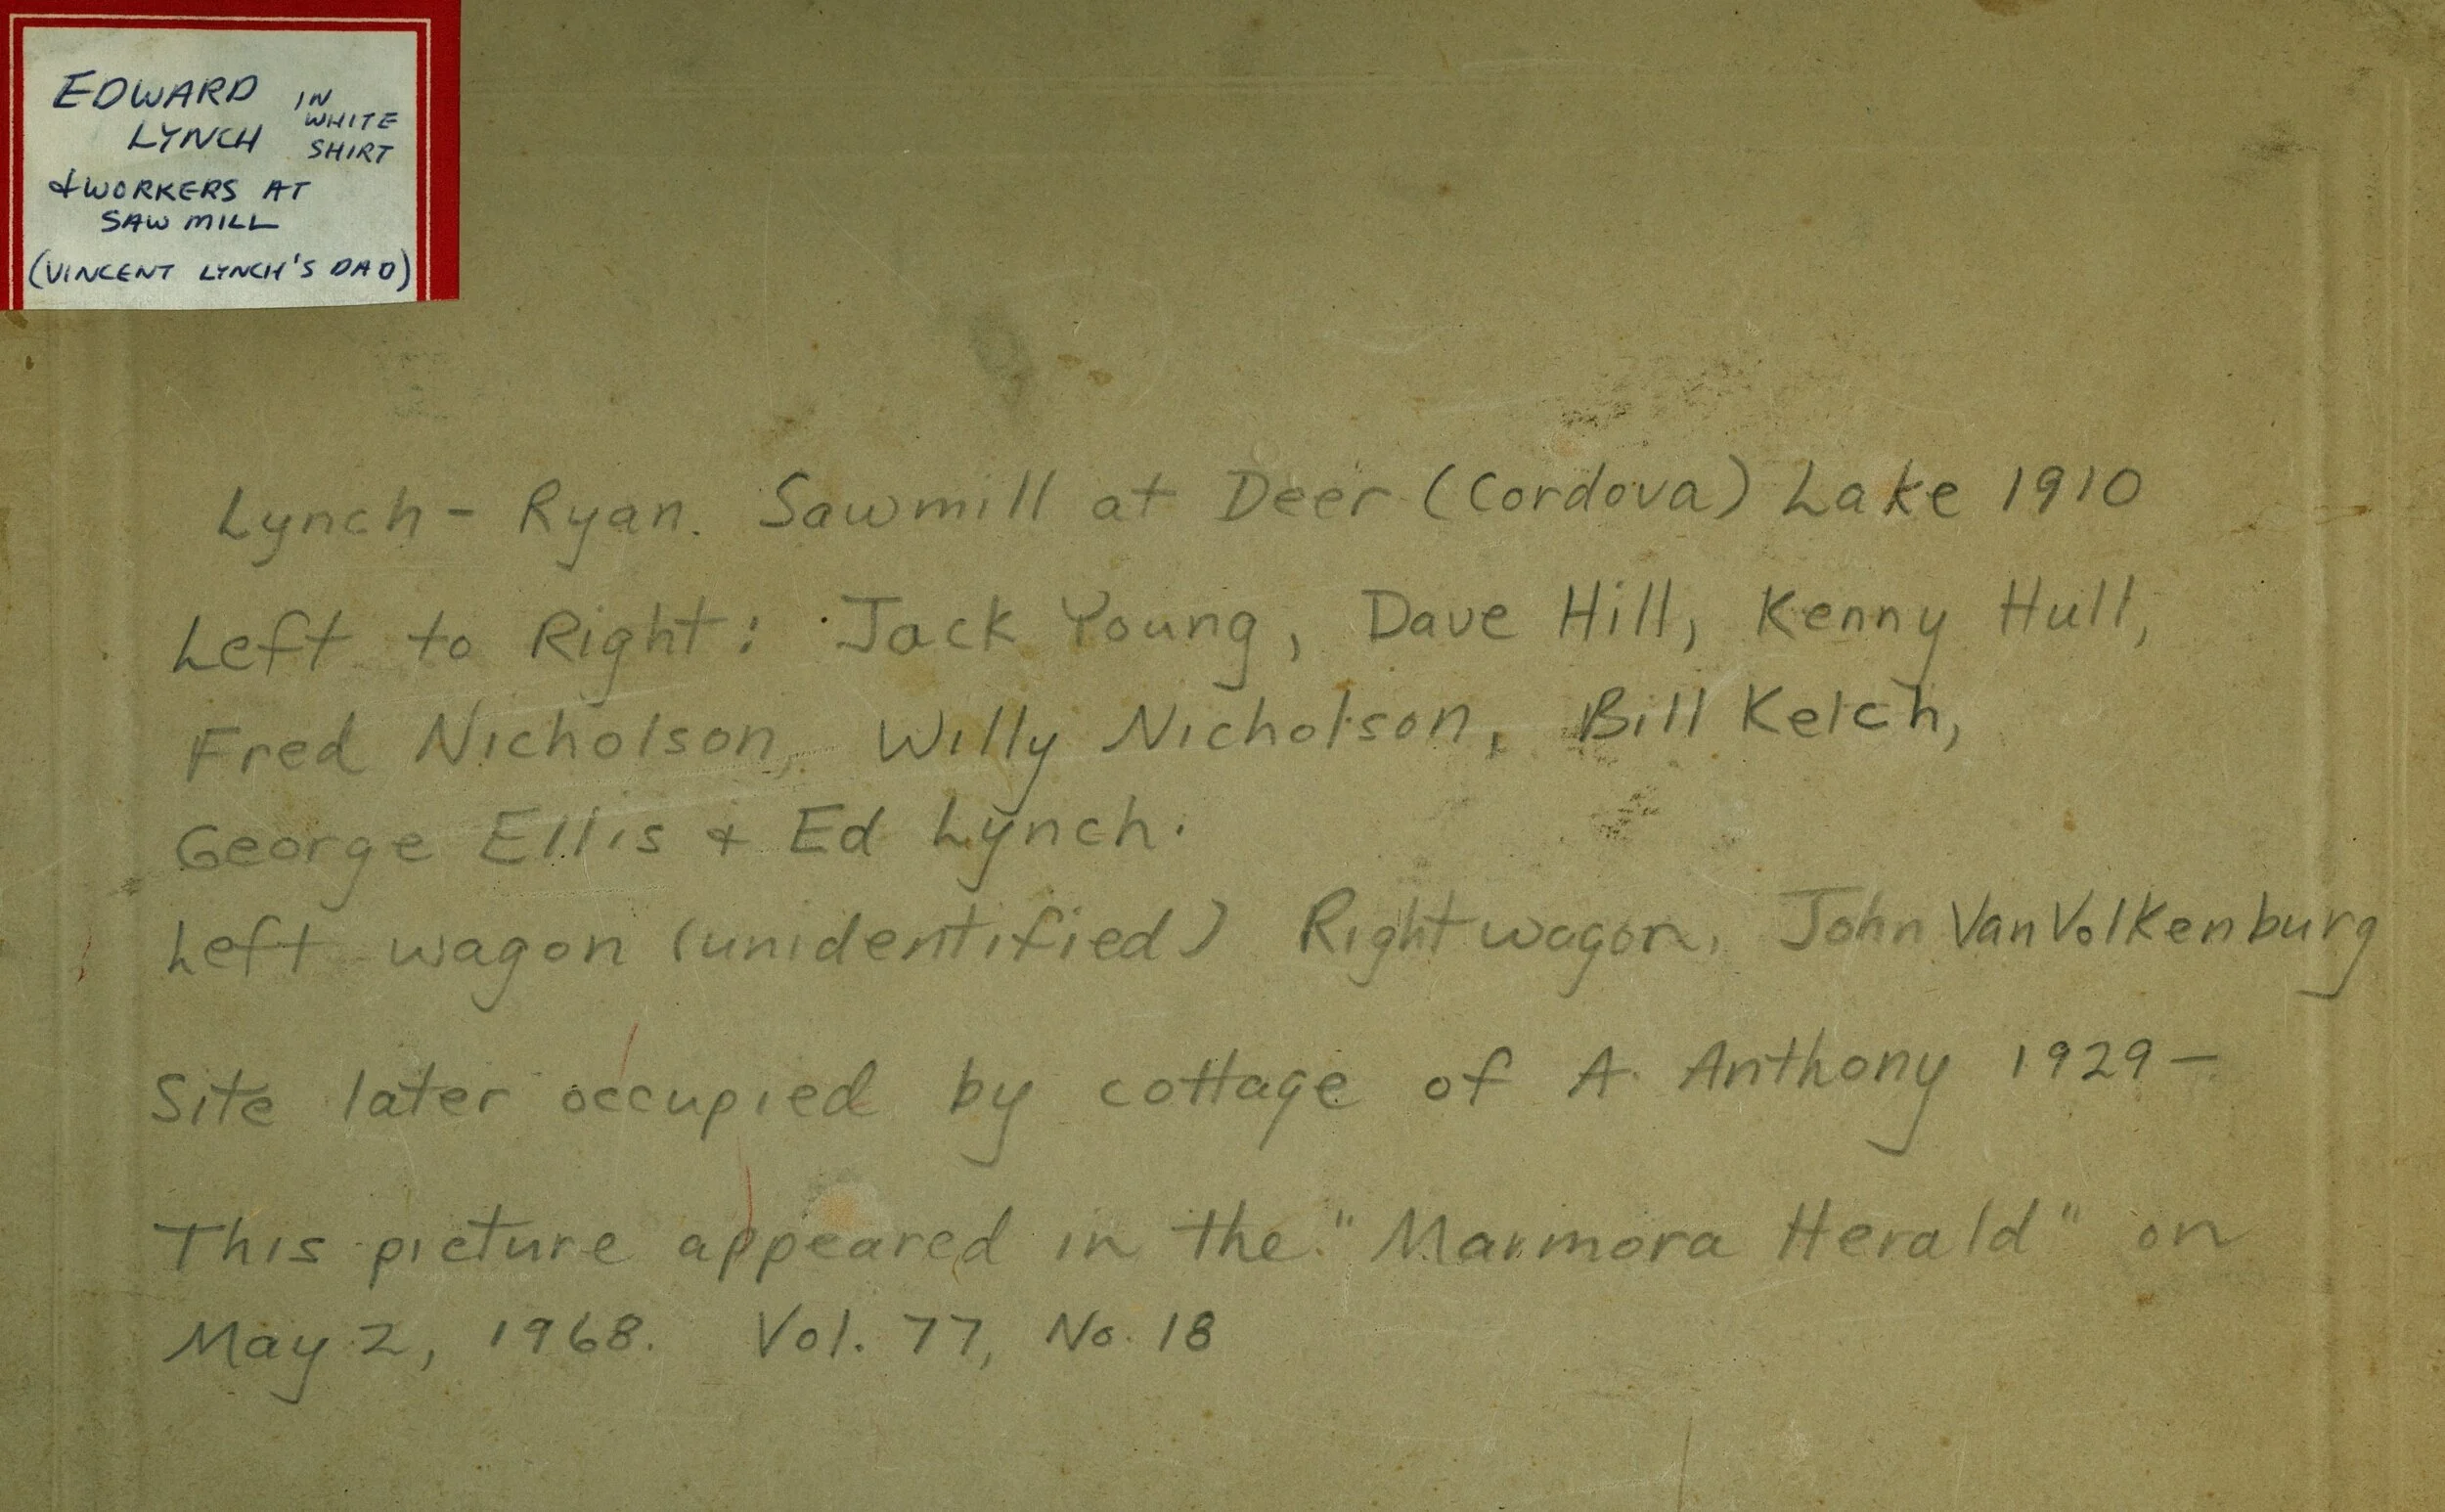 EDWARD IN
LYNCH WHITE
SHIRT
& WORKERS AT
SAW MILL
(VINCENT LYNCH'S DAD)
Lynch - Ryan. Sawmill at Deer (Cordova) Lake 1910
Left to Right: Jack Young, Dave Hill, Kenny Hull,
Fred Nicholson, Willy Nicholson, Bill Kelch,
George Ellis & Ed Lynch.
Left wagon (unidentified) Right wagon, John VanVolkenburg
Site later occupied by cottage of A. Anthony 1929 -
This picture appeared in the "Marmora Herald" on
May 2, 1968. Vol. 77, No. 18